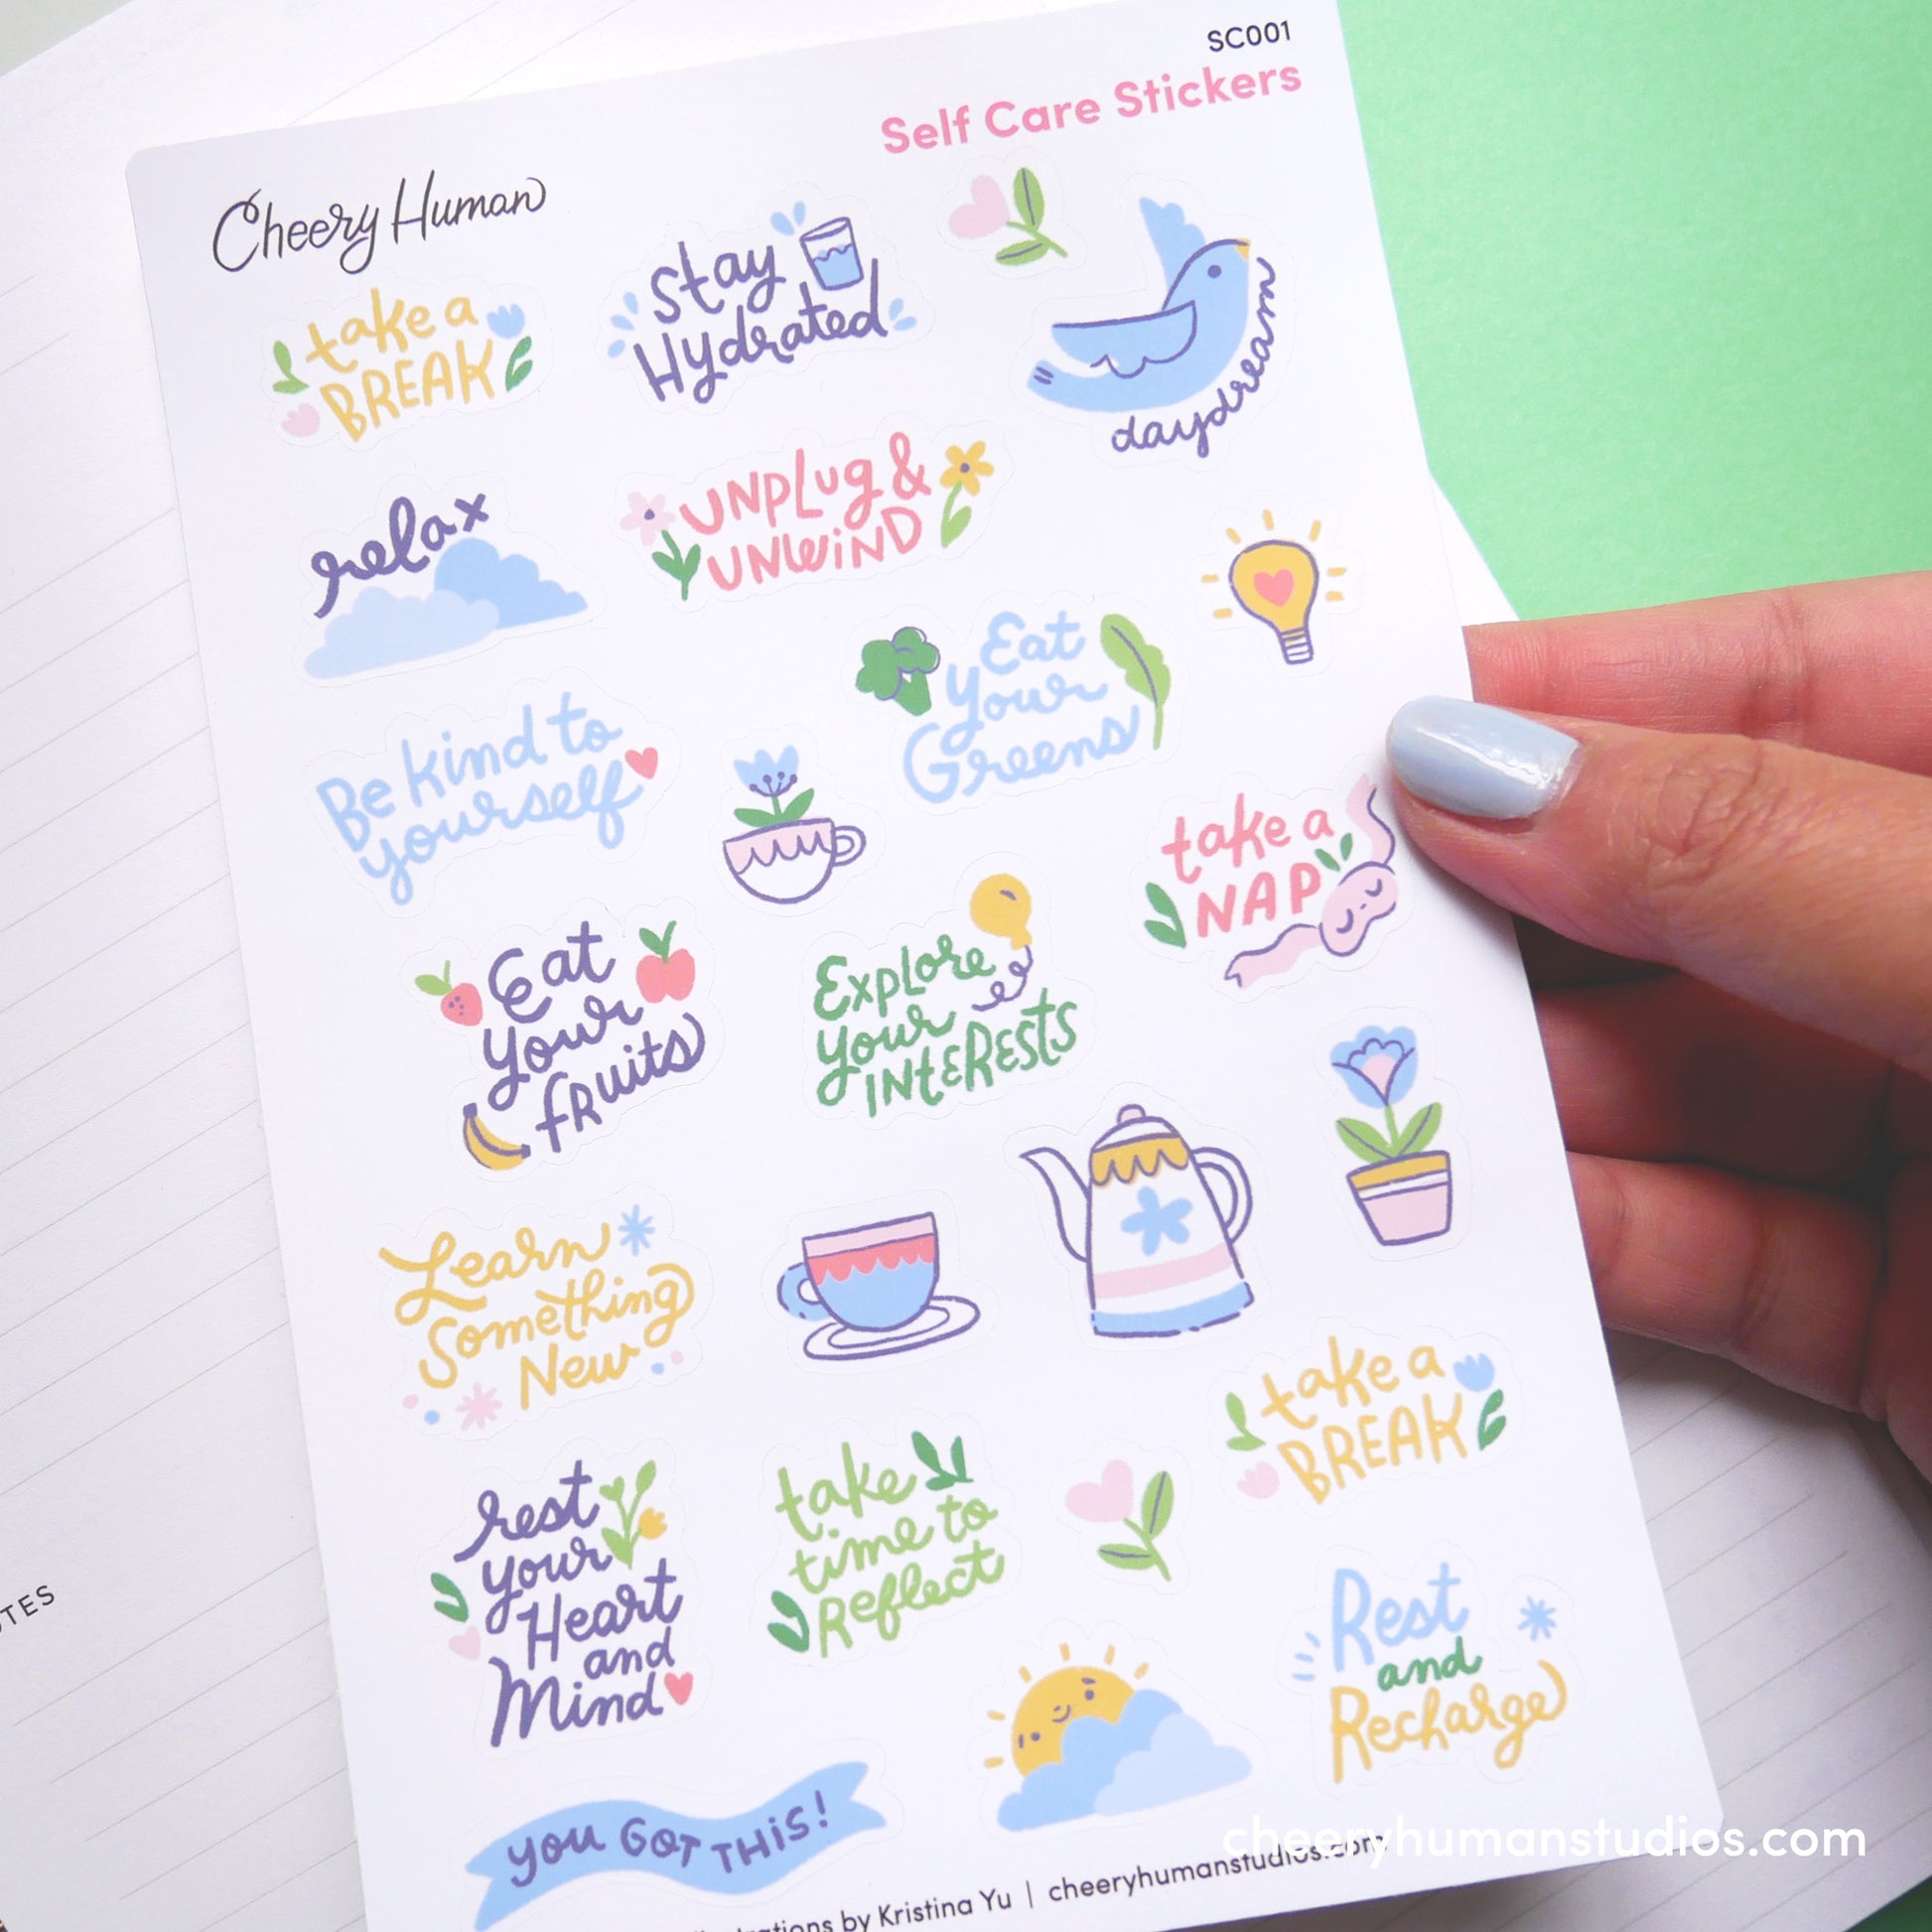 SC001
Self Care Stickers
Cheery Human
take a
BREAK
Stay
Hydrated
daydream
relax
UNPLUG &
UNWIND
Eat
your
Greens
Be kind to
yourself
take a
NAP
Eat
your
fruits
Explore
your
INTERESTS
Learn
Something
New
take a
BREAK
rest
your
Heart
and
Mind
take
time to
Reflect
Rest
and
Recharge
you GOT THIS!
cheeryhumanstudios.com
by Kristina Yu | cheeryhumanstudios.com